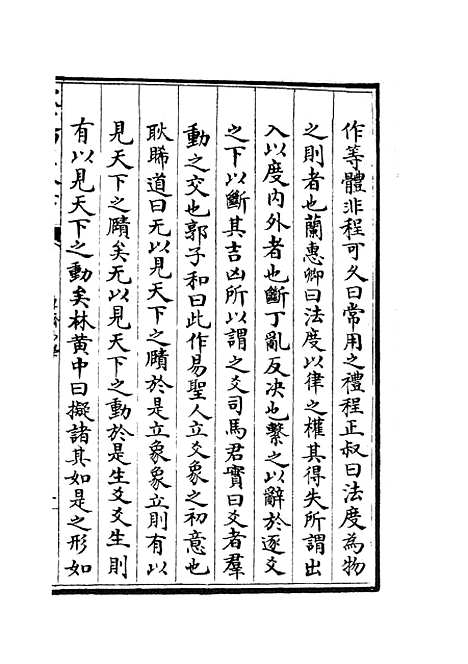 作等體非程可久曰常用之禮程正叔曰法度為物
之則者也蘭惠卿曰法度以律之權其得失所謂出
入以度內外者也斷丁亂反决也繫之以辭於逐爻
之下以斷其吉凶所以謂之爻司馬君實曰爻者羣
動之交也郭子和曰此作易聖人立爻象之初意也
耿睎道曰无以見天下之賾於是立象象立則有以
見天下之賾矣无以見天下之動於是生爻爻生則
有以見天下之動矣林黃中曰擬諸其如是之形如